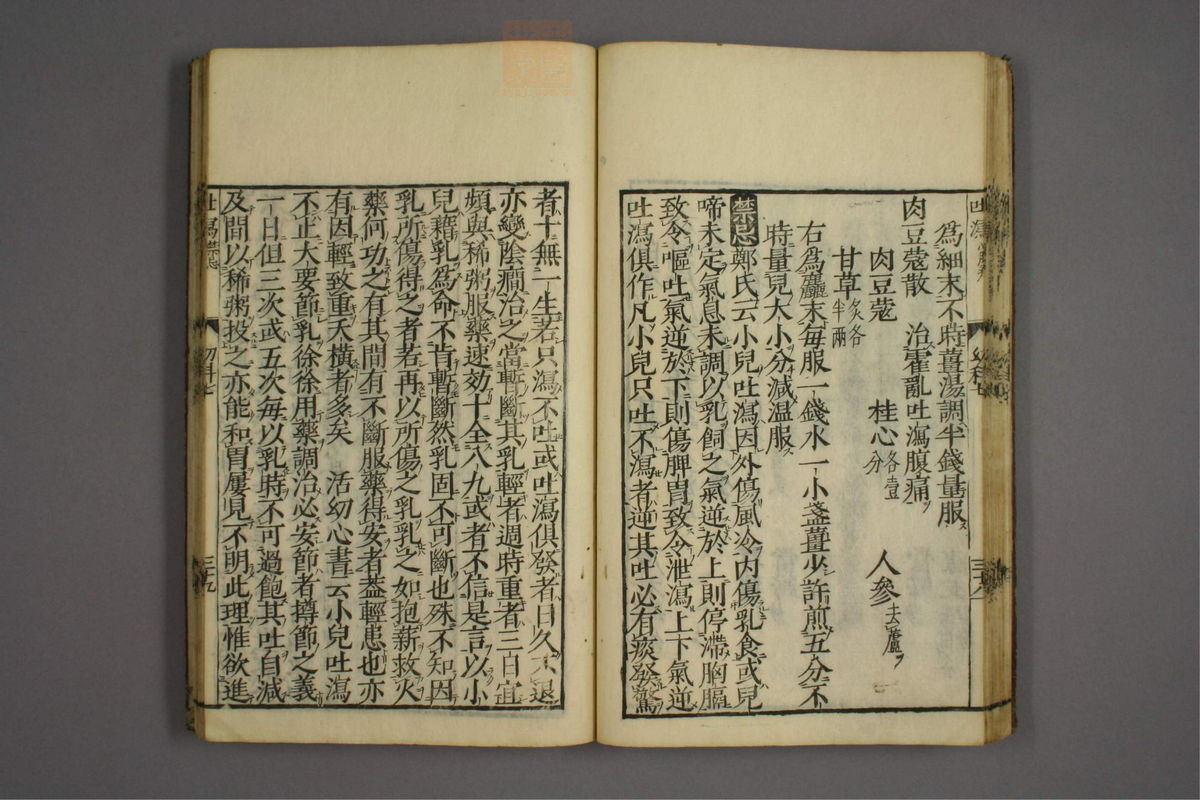 爲細末不時薑湯調半錢量服
肉豆蔻散　治霍亂吐瀉腹痛
肉豆蔻　桂心各壹分　人參去蘆
甘草炙各半兩
右爲麤末每服一錢水一小盞薑少許煎五分不
時量兒大小分減温服
禁忌鄭氏云小兒吐瀉因外傷風冷内傷乳食或兒
啼未定氣息未調以乳飼之氣逆於上則停滯胸膈
致令嘔吐氣逆於下則傷脾胃致令泄瀉上下氣逆
吐瀉俱作凡小兒只吐不瀉者逆其吐必有痰發驚
者十無一生若只瀉不吐或吐瀉俱發者日久不退
亦變陰癇治之當暫斷其乳輕者週時重者三日宜
頻與稀粥服藥速効十全八九或者不信是言以小
兒藉乳爲命不肯暫斷然乳固不可斷也殊不知因
乳所傷得之者若再以所傷之乳乳之如抱薪救火
藥何功之有其間有不斷服藥得安者葢輕患也亦
有因輕致重夭横者多矣　活幼心書云小兒吐瀉
不止大要節乳徐徐用藥調治必安節者撙節之義
一日但三次或五次每以乳時不可過飽其吐自減
及間以稀粥投之亦能和胃屢見不明此理惟欲進
吐瀉禁忌　幼科七　三十九